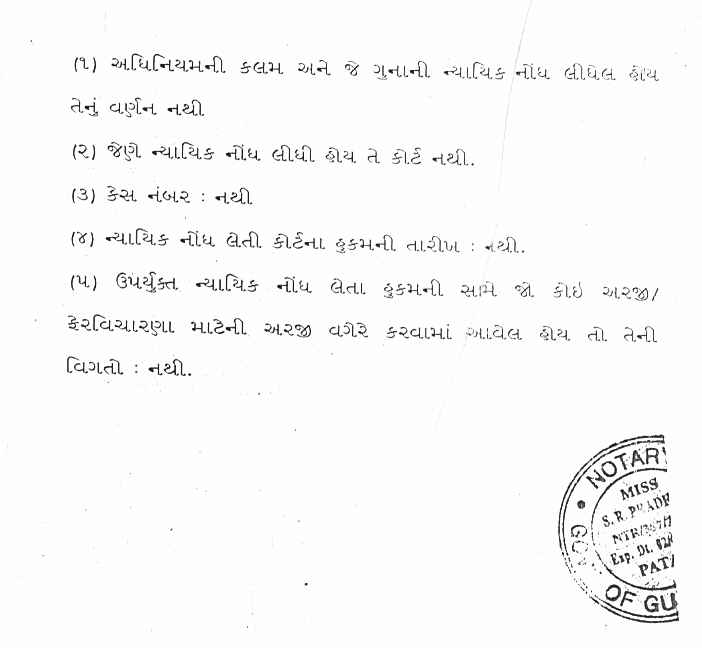 (૧) અધિનિયમની કલમ અને જે ગુનાની ન્યાયિક નોંધ લીધેલ હોય
તેનું વર્ણન નથી
(૨) જેણે ન્યાયિક નોંધ લીધી હોય તે કોર્ટ નથી.
(૩) કેસ નંબર : નથી
(૪) ન્યાયિક નોંધ લેતી કોર્ટના હુકમની તારીખ : નથી.
(૫) ઉપર્યુક્ત ન્યાયિક નોંધ લેતા હુકમની સામે જો કોઇ અરજી/
ફેરવિચારણા માટેની અરજી વગેરે કરવામાં આવેલ હોય તો તેની
વિગતો : નથી.
NOTAR
MISS
S. R.
Exp. Dt.
PAT
OF GU